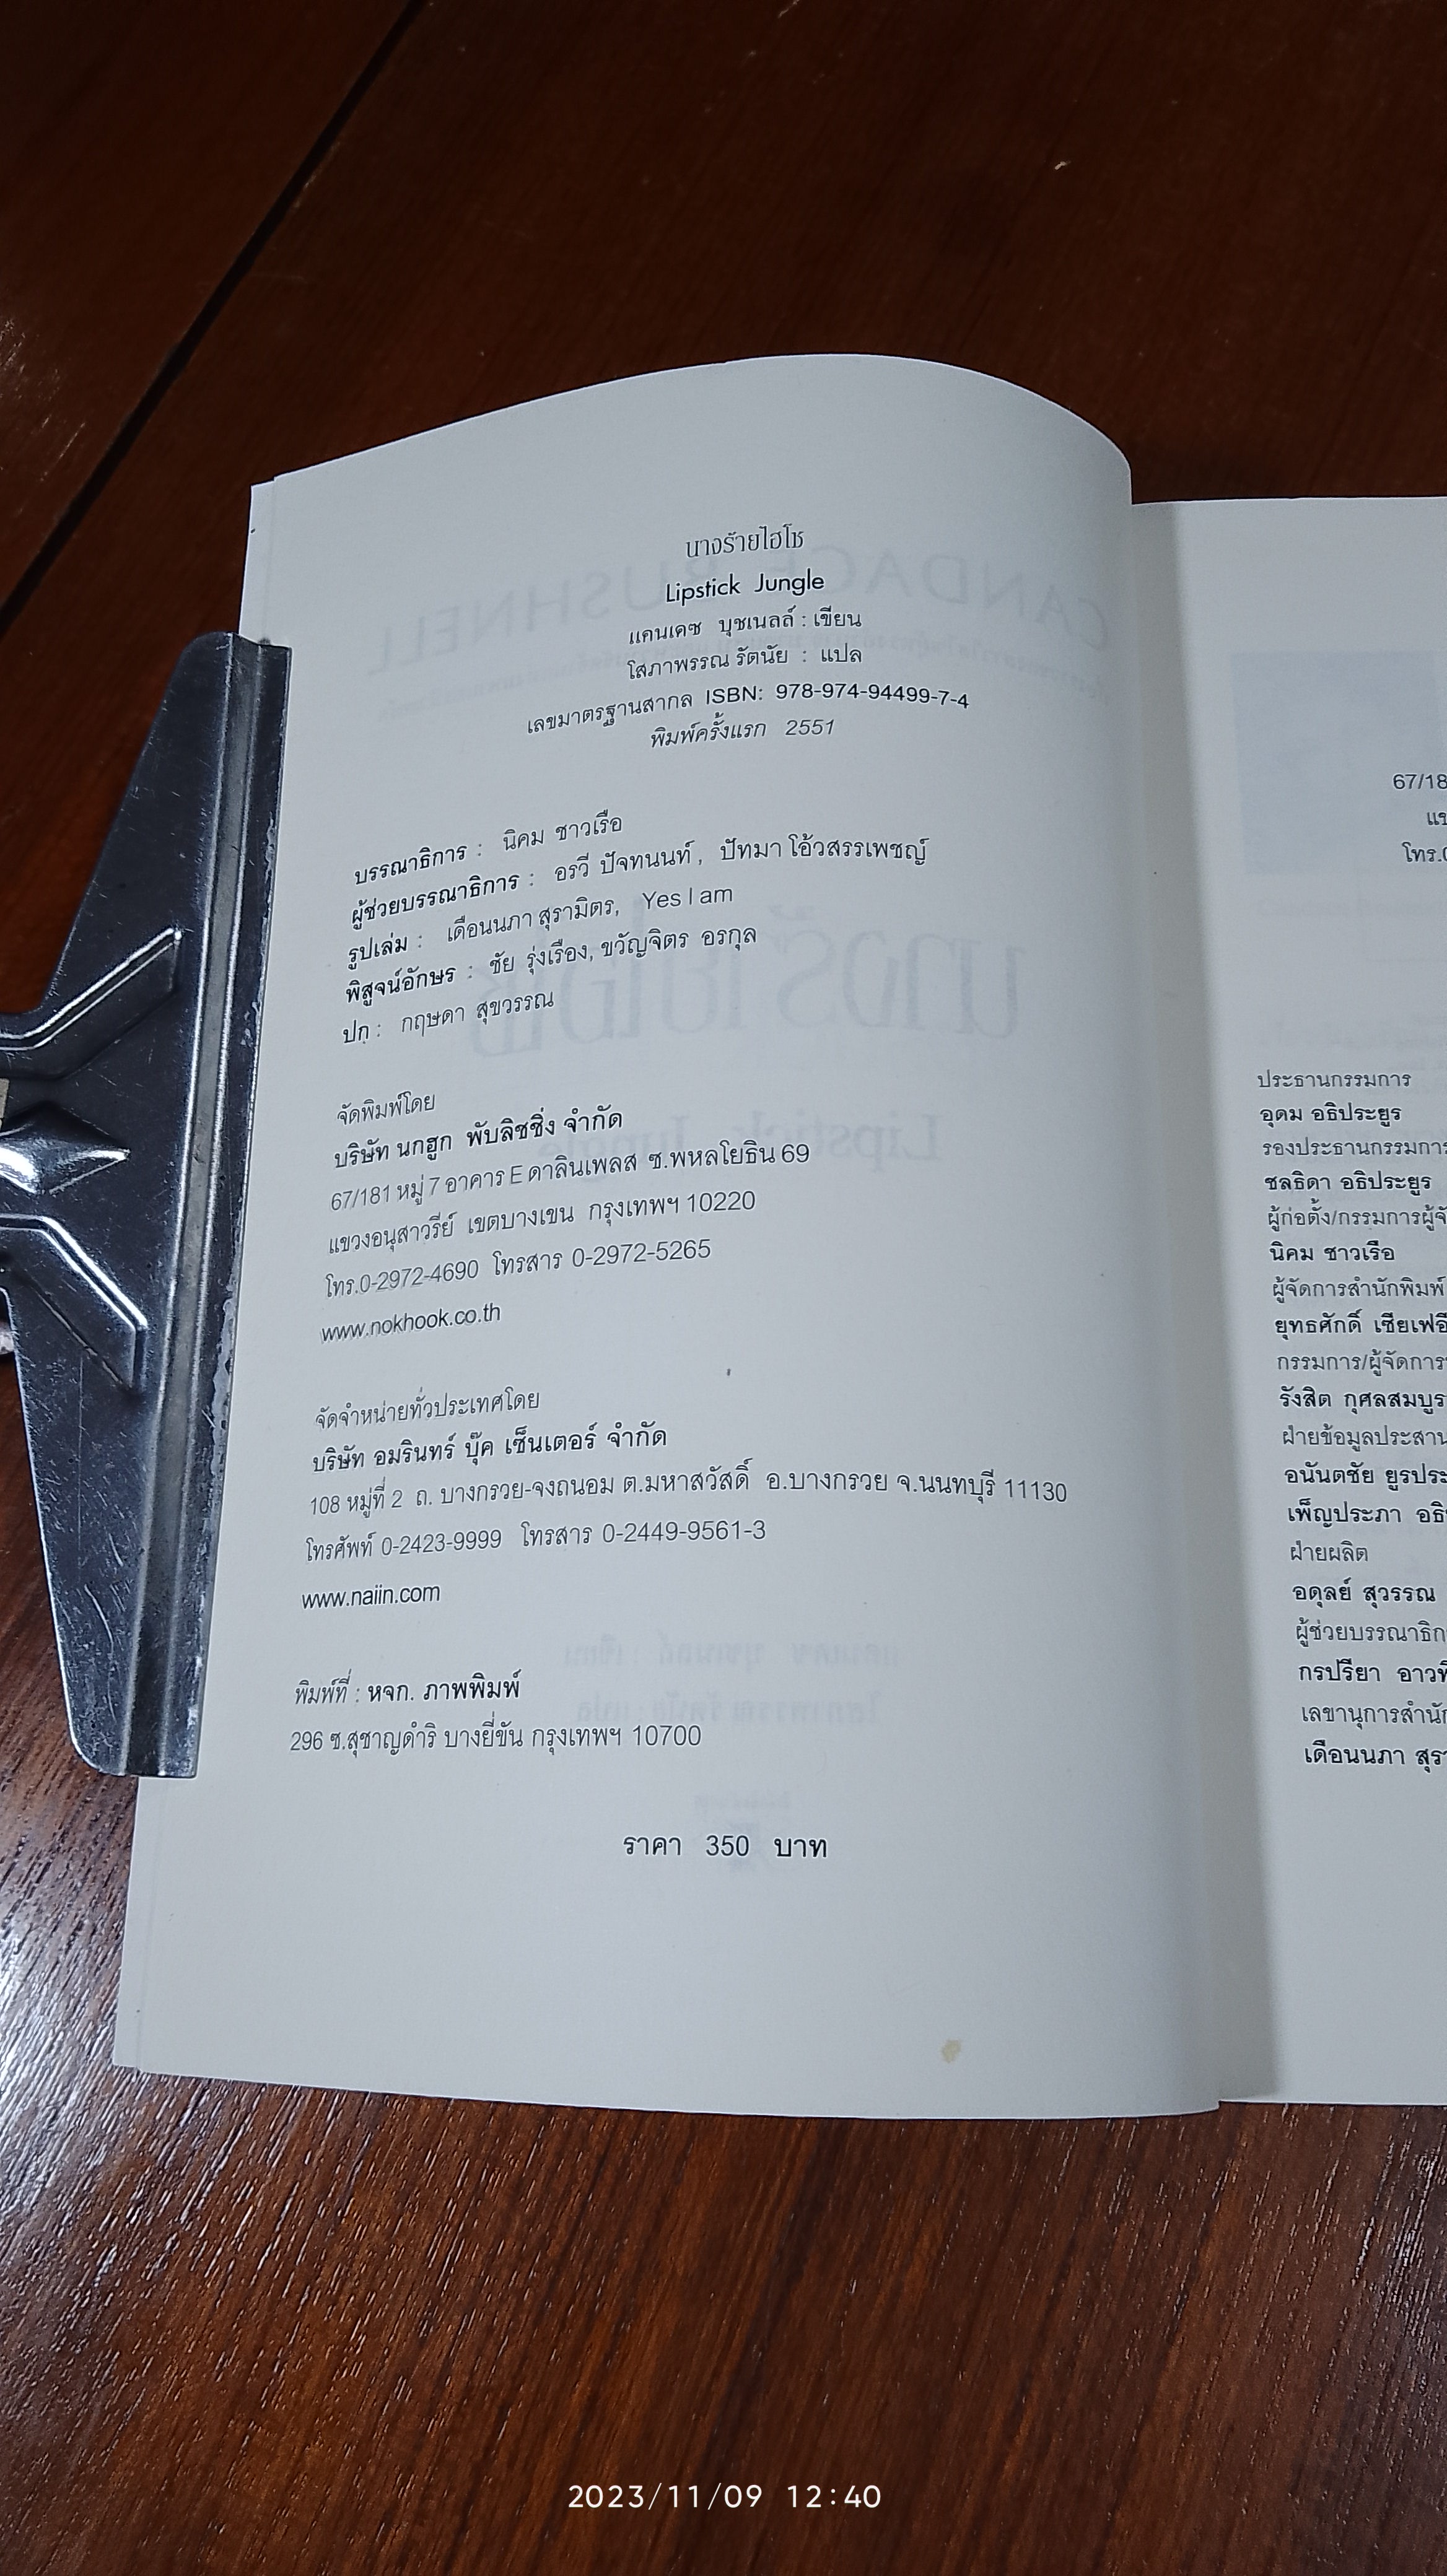 นางร้ายไฮโซ
Lipstick Jungle
แคนเดซ บุชเนลล์ : เขียน
โสภาพรรณ รัตนัย : แปล
เลขมาตรฐานสากล ISBN: 978-974-94499-7-4
พิมพ์ครั้งแรก 2551
บรรณาธิการ : นิคม ชาวเรือ
ผู้ช่วยบรรณาธิการ : อรวี ปัจทนนท์, ปัทมา โอ้วสรรเพชญ์
รูปเล่ม : เดือนนภา สุรามิตร, Yes I am
พิสูจน์อักษร : ชัย รุ่งเรือง, ขวัญจิตร อรกุล
ปก : กฤษดา สุขวรรณ
จัดพิมพ์โดย
บริษัท นกฮูก พับลิชชิ่ง จำกัด
67/181 หมู่ 7 อาคาร E ดาลินเพลส ซ.พหลโยธิน 69
แขวงอนุสาวรีย์ เขตบางเขน กรุงเทพฯ 10220
โทร.0-2972-4690 โทรสาร 0-2972-5265
www.nokhook.co.th
จัดจำหน่ายทั่วประเทศโดย
บริษัท อมรินทร์ บุ๊ค เซ็นเตอร์ จำกัด
108 หมู่ที่ 2 ถ. บางกรวย-จงถนอม ต.มหาสวัสดิ์ อ.บางกรวย จ.นนทบุรี 11130
โทรศัพท์ 0-2423-9999 โทรสาร 0-2449-9561-3
www.naiin.com
พิมพ์ที่ : หจก. ภาพพิมพ์
296 ซ.สุชาญดำริ บางยี่ขัน กรุงเทพฯ 10700
ราคา 350 บาท
67/18
แข
โทร.0
ประธานกรรมการ
อุดม อธิประยูร
รองประธานกรรมการ
ชลธิดา อธิประยูร
ผู้ก่อตั้ง/กรรมการผู้จั
นิคม ชาวเรือ
ผู้จัดการสำนักพิมพ์
ยุทธศักดิ์ เซียเฟอี
กรรมการ/ผู้จัดการ
รังสิต กุศลสมบูร
ฝ่ายข้อมูลประสาน
อนันตชัย ยูรประ
เพ็ญประภา อธิ
ฝ่ายผลิต
อดุลย์ สุวรรณ
ผู้ช่วยบรรณาธิก
กรปรียา อาวพิ
เลขานุการสำนัก
เดือนนภา สุรา
2023/11/09 12:40